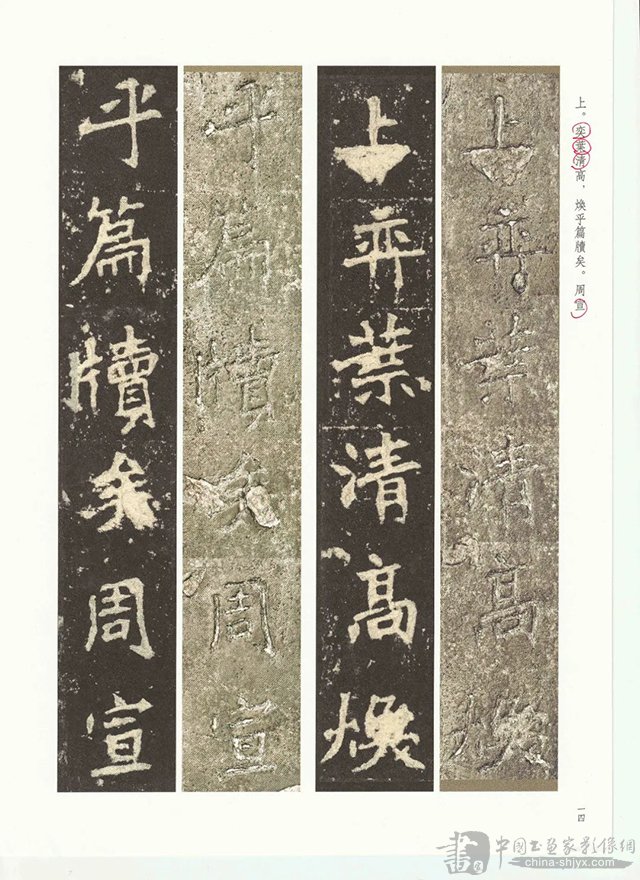 上。奕葉清高，煥乎篇牘矣。周宣
上弈葉清高煥
上弈葉清高煥
乎篇牘矣周宣
乎篇牘矣周宣
一四
書 中国书画家影像網
china-shjyx.com